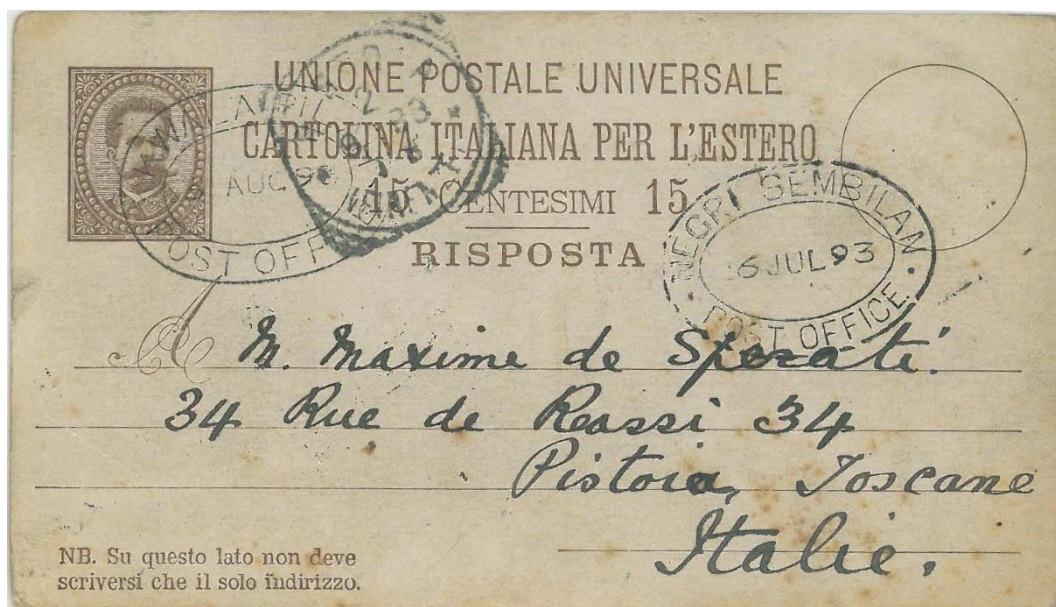 UNIONE POSTALE UNIVERSALE
CARTOLINA ITALIANA PER L'ESTERO
15 CENTESIMI 15
RISPOSTA
POST OFFICE
AUG 9
NEGRI SEMBILAN
6 JUL 93
POST OFFICE
A M. Maxime de Sperati.
34 Rue de Rossi 34
Pistoia, Toscane
Italie.
NB. Su questo lato non deve
scriversi che il solo indirizzo.